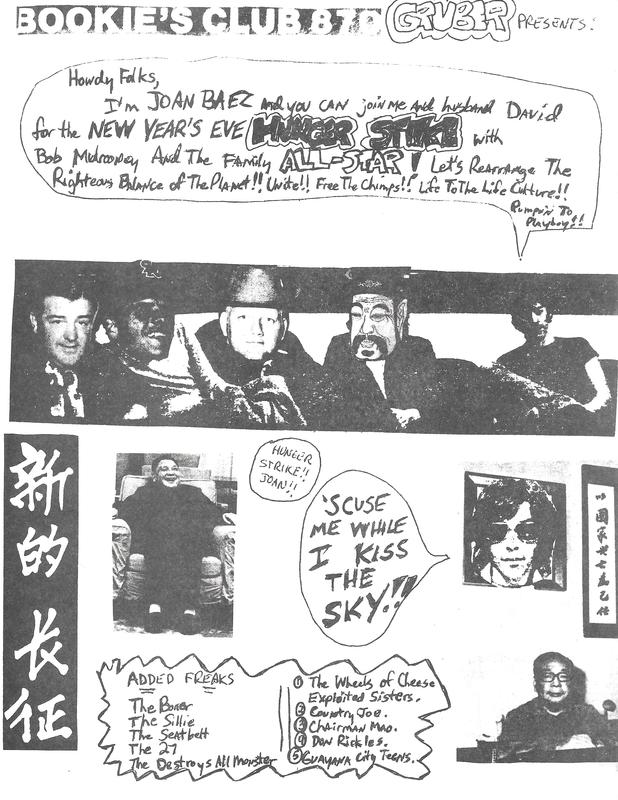 BOOKIE'S CLUB 870 GRUBER PRESENTS:
Howdy Folks,
I'm JOAN BAEZ and you CAN join me and husband David
for the NEW YEAR'S EVE HUNGER STRIKE with
Bob Mulrooney And The Family ALL-STAR! Let's Rearrange The
Righteous Balance of The Planet!! Unite!! Free The Chimps!! Life To The Life Culture!!
Pumpin To
Playboy!!
新的长征
HUNGER
STRIKE!!
JOAN!!
'SCUSE
ME WHILE
I KISS
THE
SKY!!
以國家興亡為己任
ADDED FREAKS
The Boner
The Sillie
The Seatbelt
The 27
The Destroys All Monster
① The Wheels of Cheese
Exploited Sisters.
② Country Joe.
③ Chairman Mao.
④ Don Rickles.
⑤ Guayana City Teens.